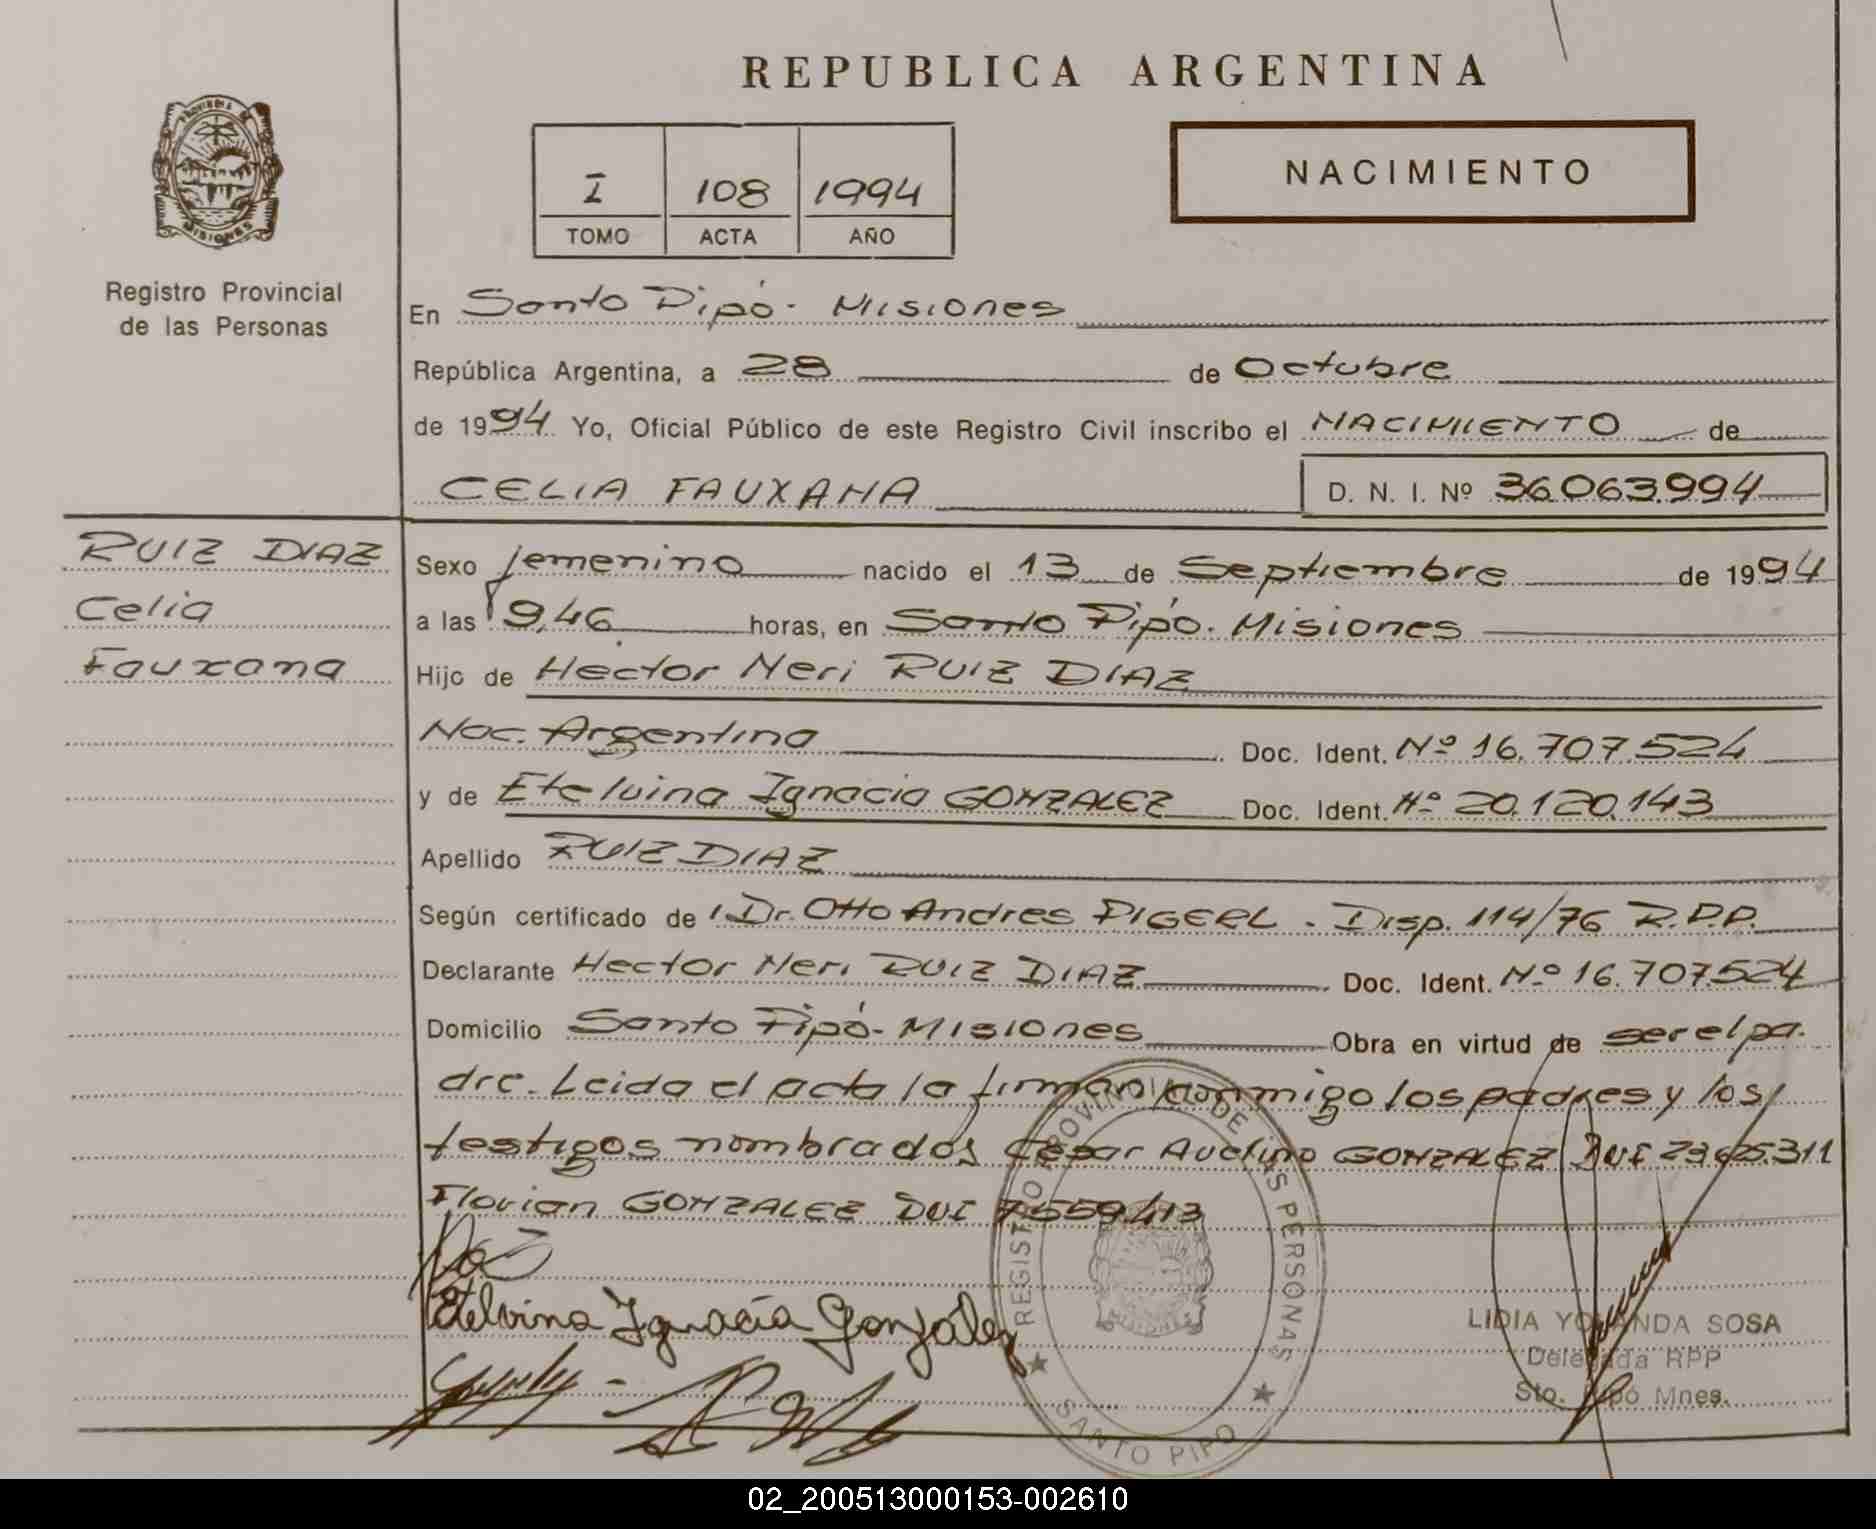 REPUBLICA ARGENTINA
PROVINCIA DE
MISIONES
Registro Provincial
de las Personas
I 108 1994
TOMO ACTA AÑO
NACIMIENTO
En Santo Pipó - Misiones
República Argentina, a 28 de Octubre
de 1994 Yo, Oficial Público de este Registro Civil inscribo el NACIMIENTO de
CELIA FAUXANA D. N. I. Nº 36.063.994
RUIZ DIAZ
Celia
Fauxana
Sexo femenino nacido el 13 de Septiembre de 1994
a las 9,46 horas, en Santo Pipó. Misiones
Hijo de Hector Neri RUIZ DIAZ
Nac. Argentina Doc. Ident. Nº 16.707.524
y de Etelvina Ignacia GONZALEZ Doc. Ident. Nº 20.120.143
Apellido RUIZ DIAZ
Según certificado de Dr. Otto Andres PIGERL - Disp. 114/76 R.P.P.
Declarante Hector Neri RUIZ DIAZ Doc. Ident. Nº 16.707.524
Domicilio Santo Pipó - Misiones Obra en virtud de ser el pa.
dre. Leida el acta la firman conmigo los padres y los
testigos nombrados Cesar Avelino GONZALEZ DNI
Florian GONZALEZ DNI 7.559.413
Etelvina Ignacia González
REGISTRO PROVINCIAL DE LAS PERSONAS
SANTO PIPO
LIDIA YOLANDA SOSA
Delegada RPP
Sto. Pipó Mnes.
02_200513000153-002610